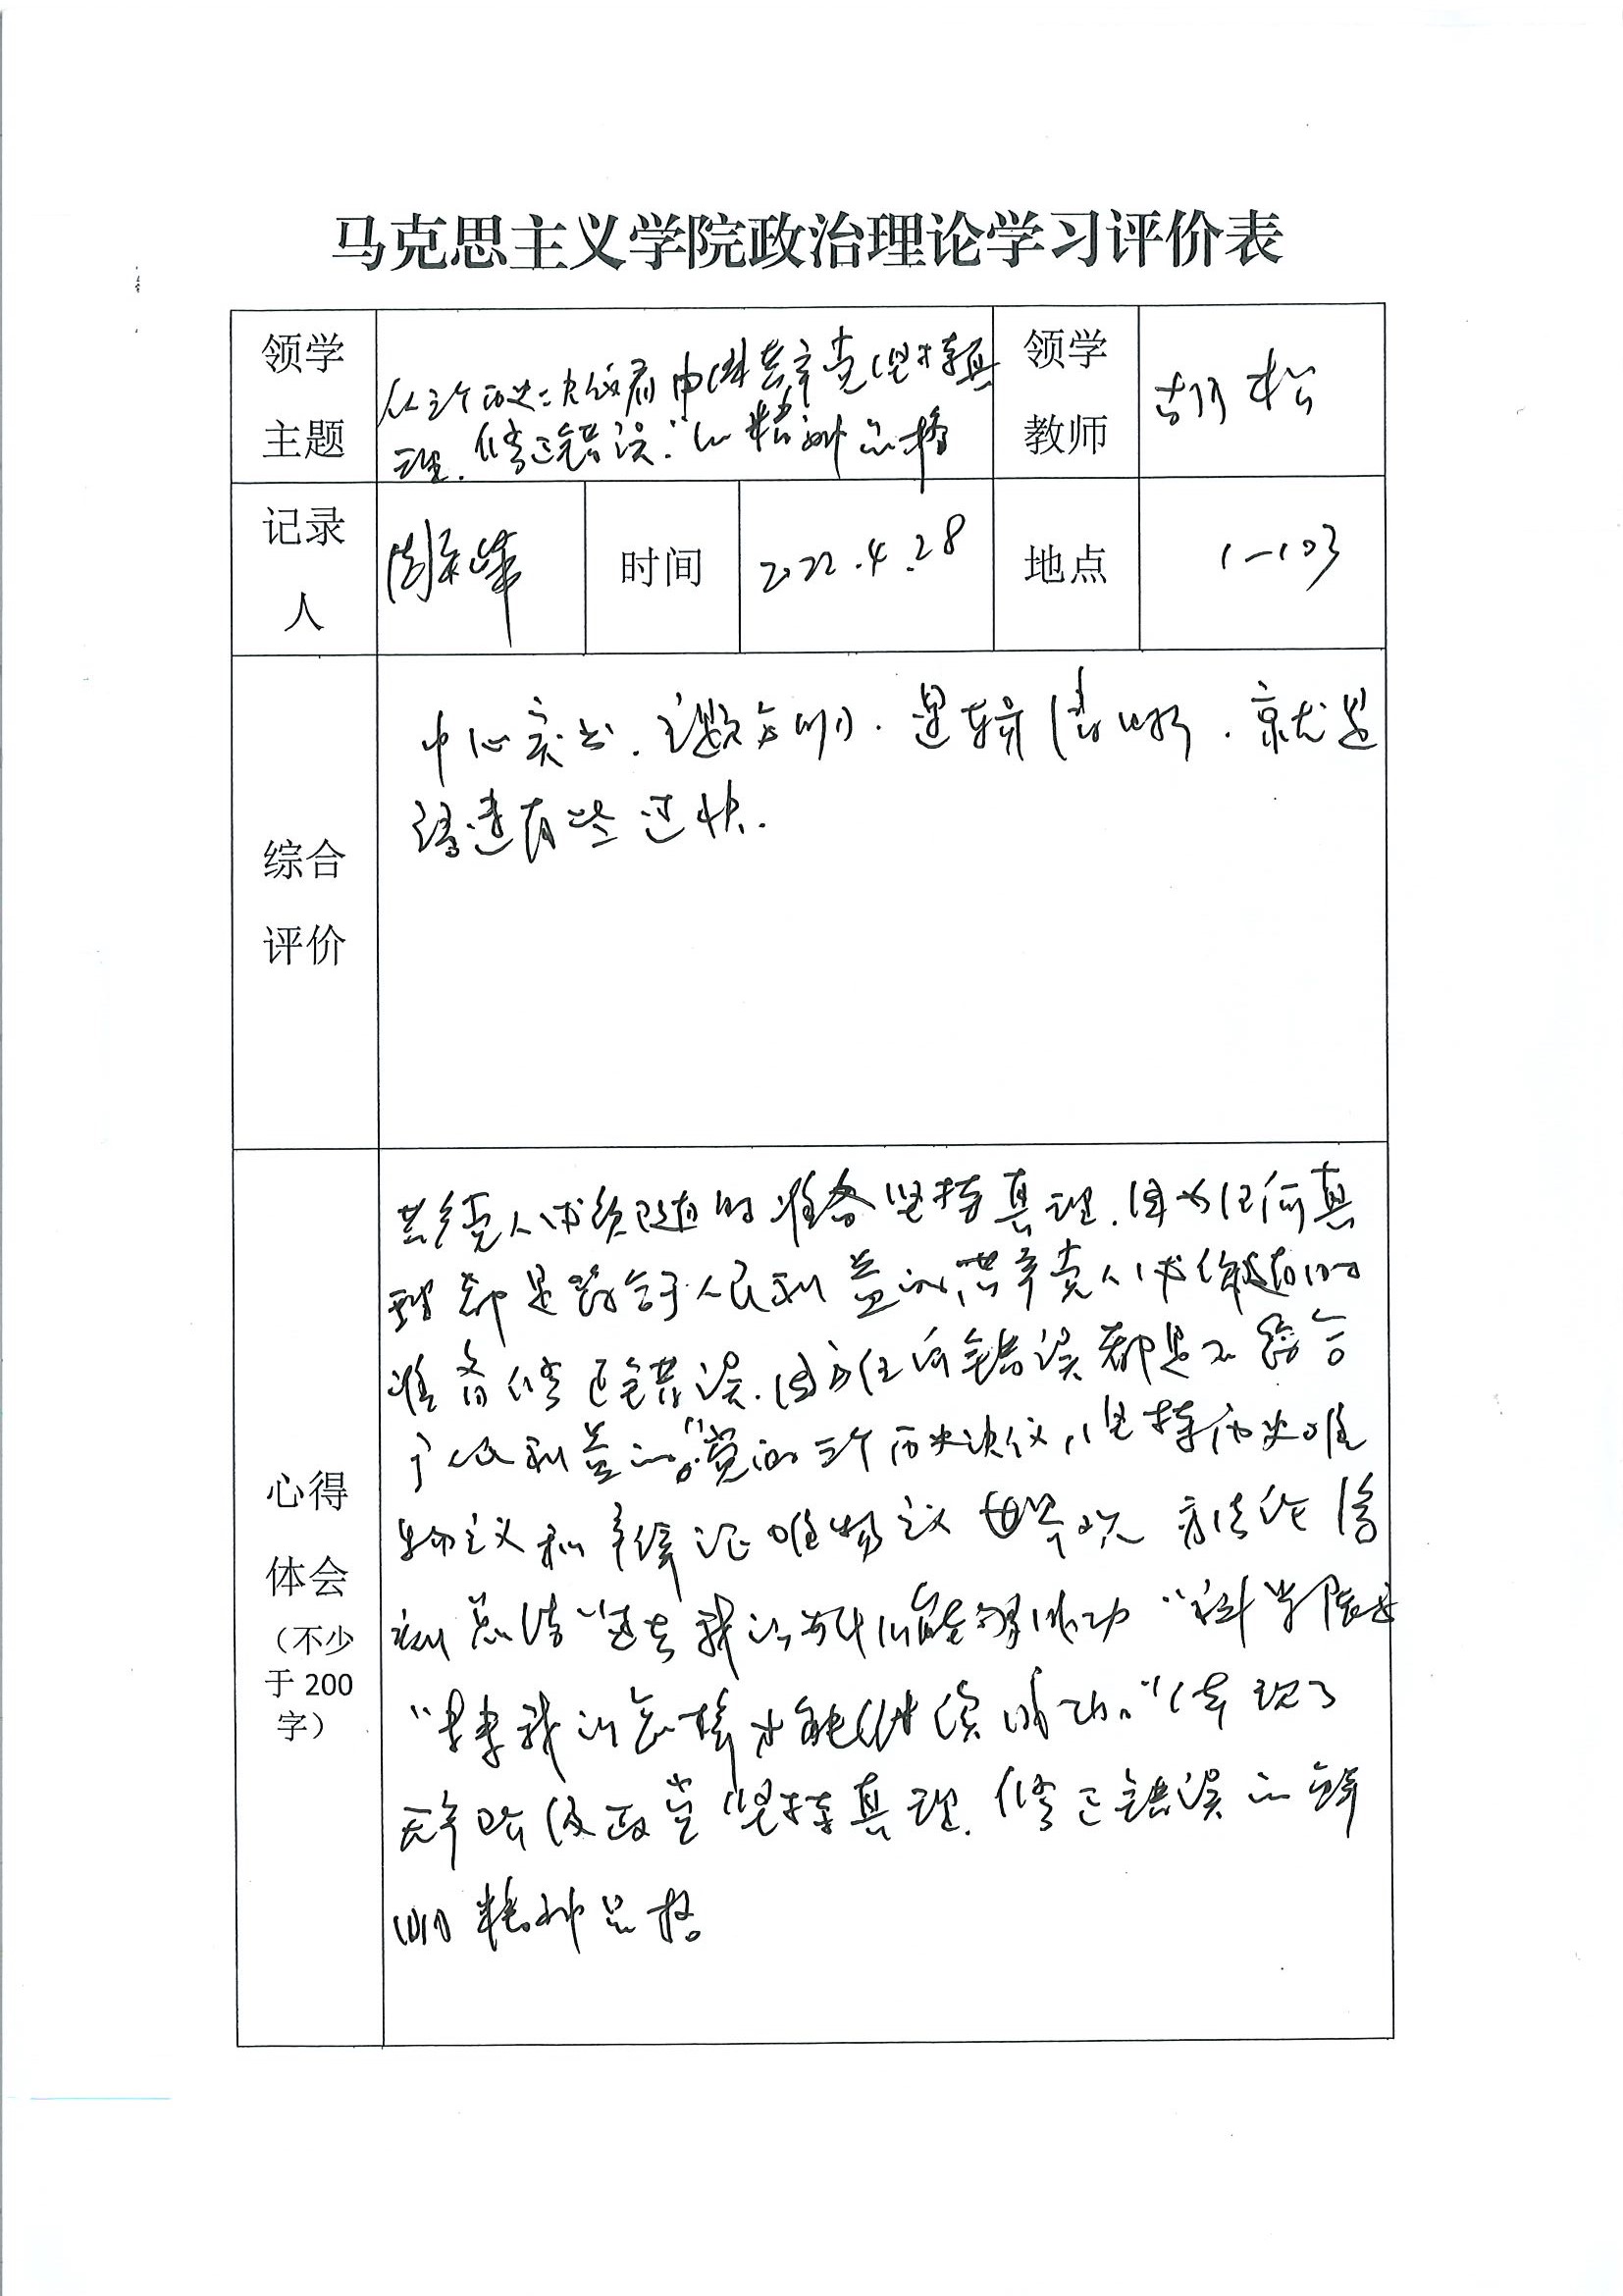 马克思主义学院政治理论学习评价表
领学
主题
从三个历史决议看中国共产党“坚持真
理、修正错误”的精神品格
领学
教师
胡松
记录
人
时间
2022.4.28
地点
1-103
综合
评价
中心突出、主题鲜明、逻辑清晰、就是
语速有些过快.
心得
体会
(不少
于 200
字)
共产党人必须随时准备坚持真理、因为任何真
理都是符合于人民利益的,共产党人必须随时
准备修正错误、因为任何错误都是不符合
于人民利益的。”党的三个历史决议,坚持历史唯
物主义和辩证唯物主义世界观方法论
总结“过去我们为什么能够成功”科学
我们怎样才能继续成功。”体现了
无产阶级政党坚持真理、修正错误的鲜
明精神品格